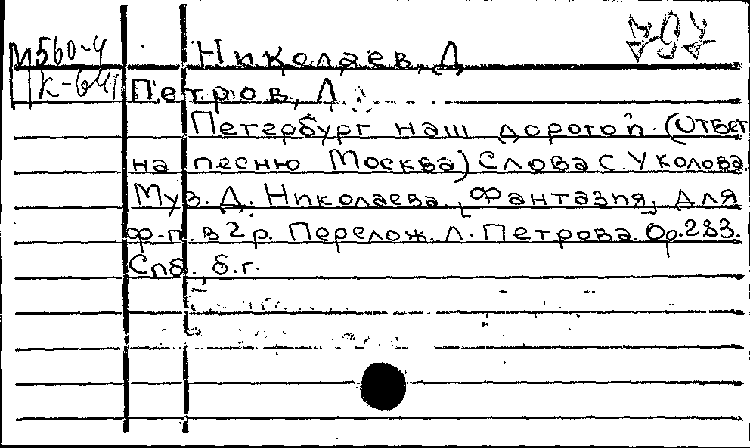 М560-4 Николаев, Д 797
К-641 Петров, Л.
Петербург наш дорогой. (Ответ
на песню Москва) Слова С. Уколова.
Муз. Д. Николаева. [Фантазия] для
ф-п. в 2 р. Перелож. Л. Петрова. Ор. 283.
Спб., б.г.